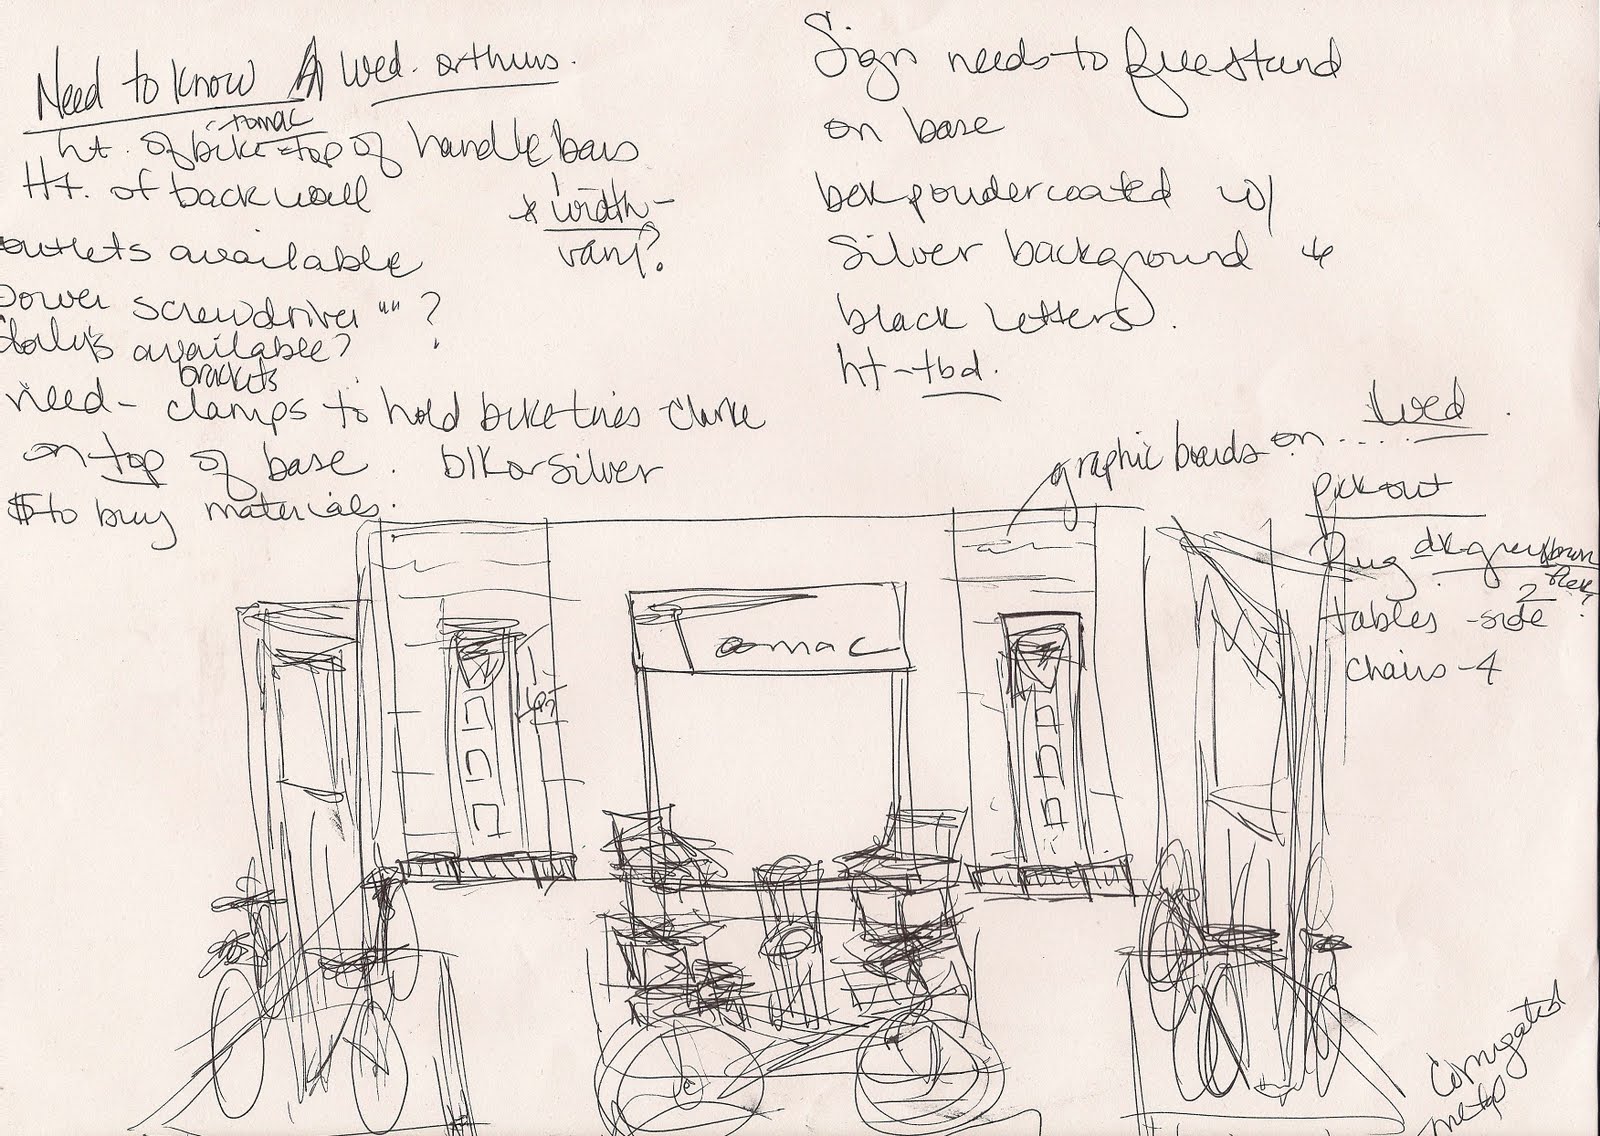 Need to Know Wed. arthurs.
tomac
ht. of bike - top of handle bars
Ht. of back wall
* width -
vary?
outlets available
power screwdriver "" ?
available?
brackets
need - clamps to hold bike tires
on top of base. blk or silver
$ to buy materials.
Sign needs to freestand
on base
powdercoated w/
silver background &
black letters.
ht - tbd.
Wed.
graphic boards on .....
pick out
Rug dk grey
tables - side 2
chairs - 4
omac
corrugated
metal